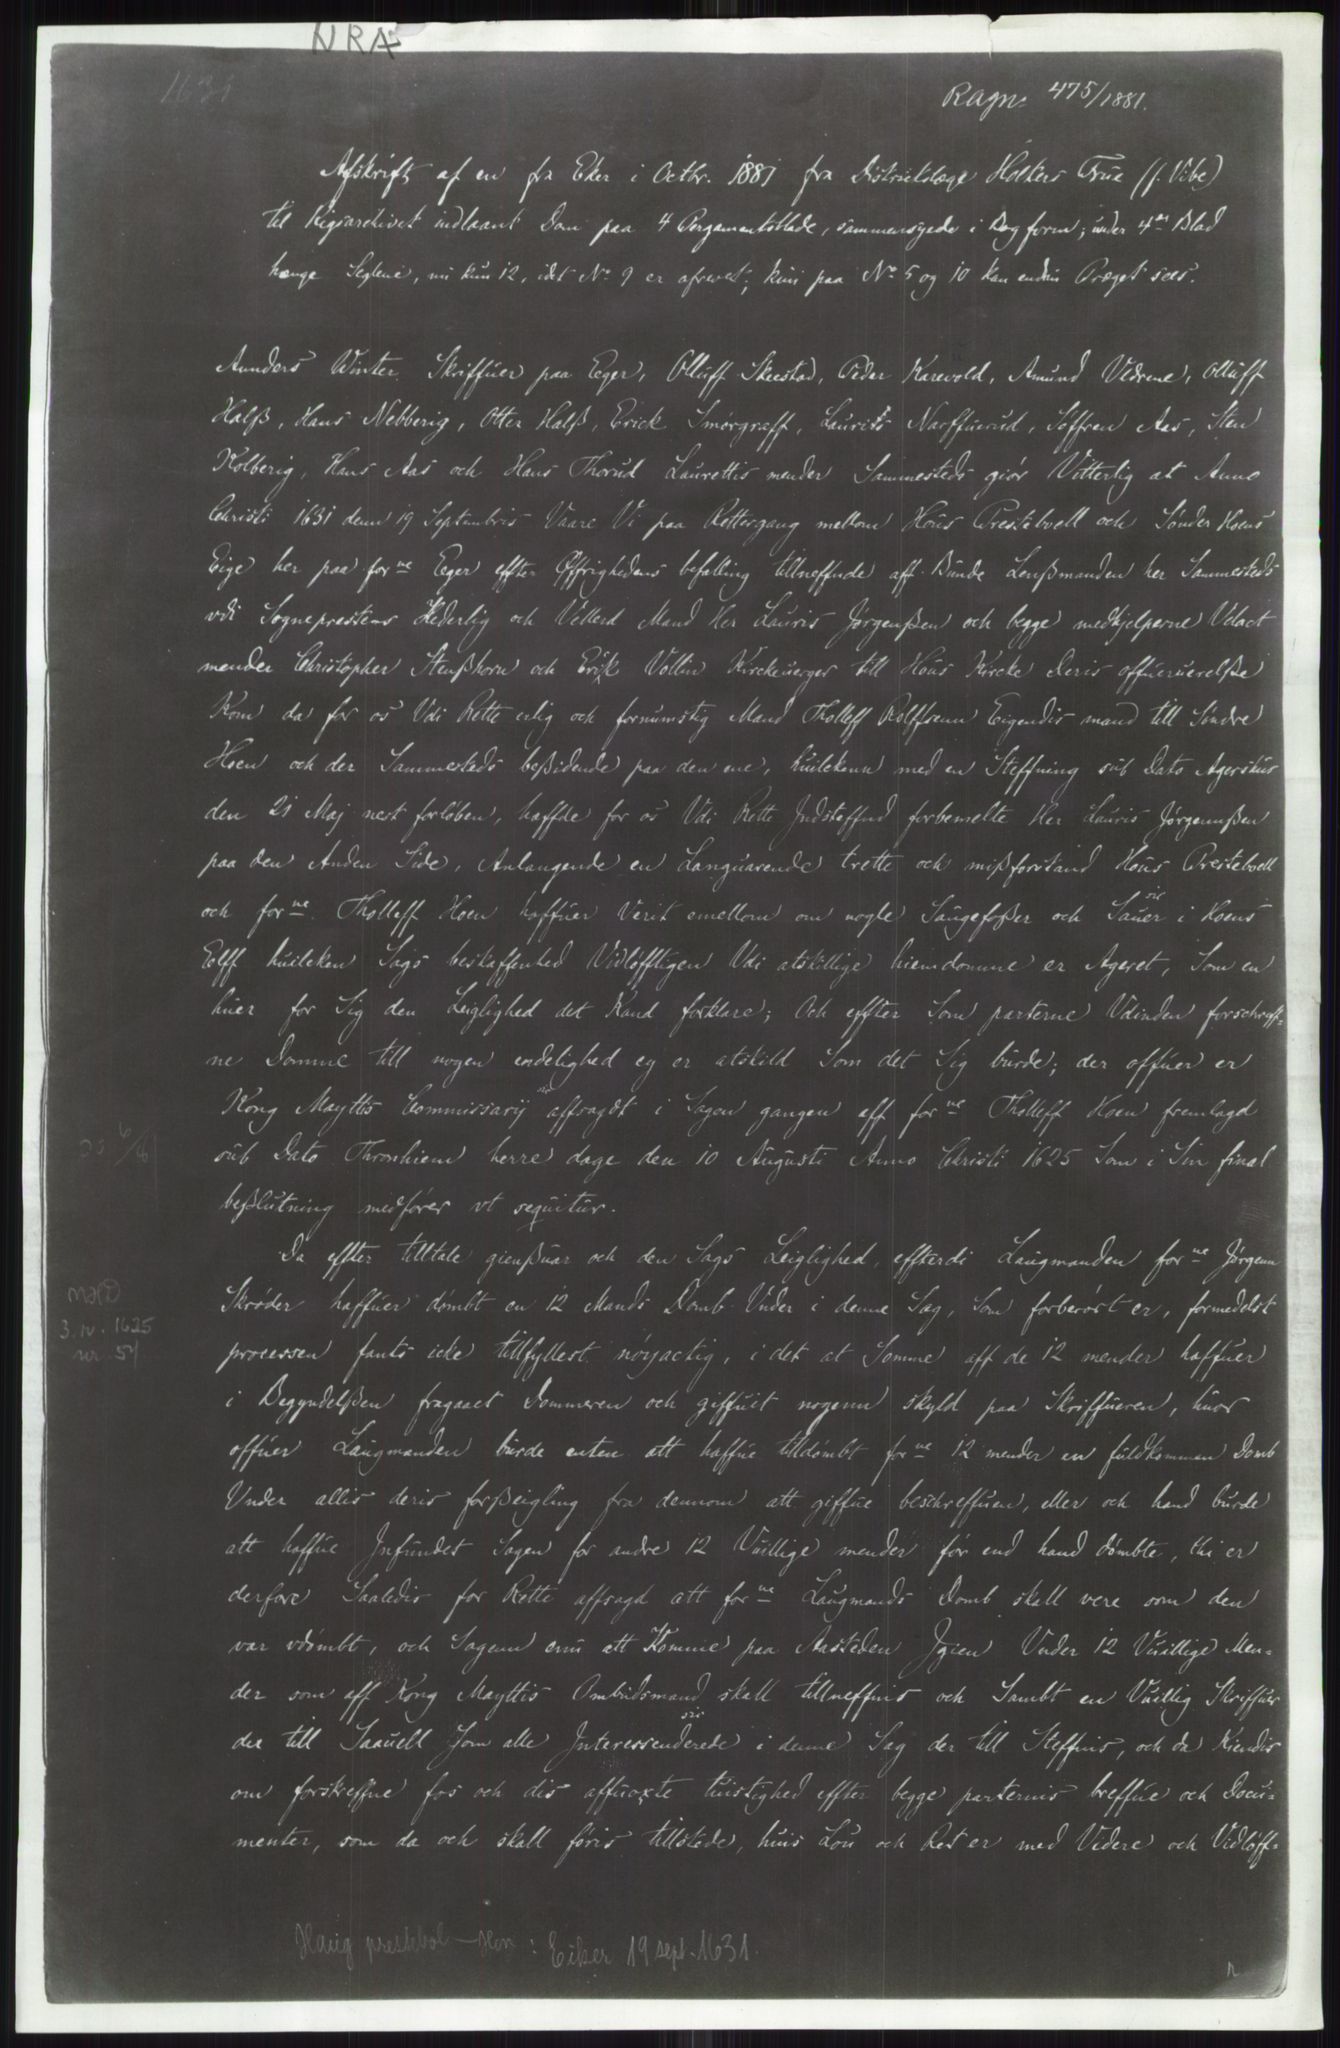 NRA
1631
Ragn. 475/1881.
Afskrift af en fra Eker i Octbr. 1881 fra Districtslæge Holkers Frue (f. Vibe)
til Rigsarchivet indlaant Dom paa 4 Pergamentsblade, sammensyede i Bogform; under 4de Blad
hænge Seglene, nu kun 12, idet No 9 er afrevet; kun paa No 5 og 10 kan endnu Præget sees.
Aunders Winter Skriffuer paa Eger, Olluff Skeestad, Peder Karevold, Amund Vidrene, Olluff
Halß, Hans Nebberig, Otter Halß, Erick Smørgraff, Laurits Narffuerud, Söffren Aas, Sten
Kolberig, Hans Aas och Hans Thorud Laurettis mender Sammesteds giör Vitterlig at Anno
Christi 1631 denn 19 Septembris Vaare Vi paa Rettergang mellom Hous Presteboell och Sönder Hoens
Eige her paa forne Eger effter Øffrighedens befalling tillneffnde aff Bunde Lenßmanden her Sammesteds
vdi Sogneprestens Hederlig och Vellerd Mand Her Lauris Jørgenßen och begge medhjelperne Velact
mender Christopher Stenßhorn och Erik Vollin Kirckeuerger till Hous Kircke deris offueruerelße
Kom da for os Vdi Rette erlig och fornumstig Mand Tholleff Rolffsenn Eigendis mand till Sündre
Hoen och der Sammesteds beßidende paa den ene, huilckenn med en Steffning sub Dato Agershus
den 21 Maj nest forloben, haffde for os Vdi Rette Indsteffnd forbemelte Her Lauris Jørgennßen
paa den Anden Side, Anlangende en Languarende trette och mißforstand Hous Presteboell
och forne Tholleff Hoen haffuer Verit emellom om nogle Saugefoßer och Sauer sic i Hoens
Eelff huilcken Sags beskaffenhed Vidløfftigen Vdi atskillige hiemdomme er Ageret, Som en
huer for Sig den Leiglighed det Kand forklare; Och effter Som parterne Vdinden forschreff-
ne Domme till nogen endelighed ey er atskild Som det Sig burde; der offuer er
Kong Maytts Commissarij sic affsagdt i Sagen gangen aff forne Tholleff Hoen fremlagd
sub Dato Thronhiem herre dage den 10 Augusti Anno Christi 1625 Som i Sin final
beßlutning medfører vt sequitur.
Da effter tilltale gienßuar och den Sags Leiglighed, effterdi Laugmanden forne Jørgenn
Skrøder haffuer dömbt en 12 Mands Domb Vnder i denne Sag, Som forberört er, formedelst
processen fants icke tillfyllest nöyactig, i det at Somme aff de 12 mender haffuer
i Begyndelßen fragaaet Dommeren och giffuit nogenn skyld paa Skriffueren, huor
offuer Laugmanden burde enten att haffue tildömbt forne 12 mender en fuldkommen Domb
Vnder allis deris forßeigling fra dennom att giffue beschreffuen, eller och hand burde
att haffue Infundet Sagen for andre 12 Vuillige mender för end hand dömbte, thi er
derfore Saaledis for Rette affsagd att forne Laugmands Domb skall vere som den
var vdömbt, och Sagenn enu att Komme paa Aasteden Igien Vnder 12 Vuillige Men-
der som aff Kong Mayttis Ombudsmand skall tillneffnis och Sambt en Vuillig Skriffuer
der till Saauell som alle Interessenderede sic i denne Sag der till Steffnis, och da Kiendis
om forskreffne fos och dis affuoxte tuistighed effter begge parternis breffue och Docu-
menter, som da och skall føris tillstede, huis Lou och Ret er med Videre och Vidløff-
3. IV. 1625
nr. 54
Haug prestebol – Hoen : Eiker 19 sept. 1631.